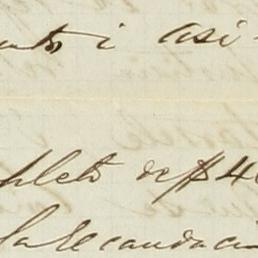 ento i asi
pleto de $4
la recaudaci